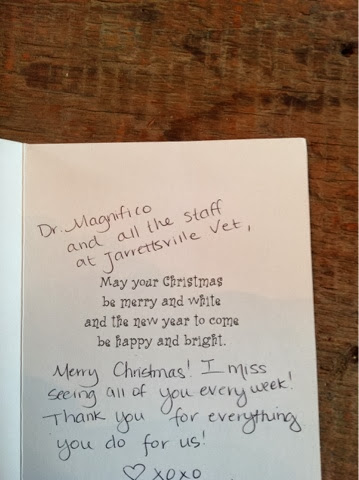 Dr. Magnifico
and all the staff
at Jarrettsville Vet,
May your Christmas
be merry and white
and the new year to come
be happy and bright.
Merry Christmas! I miss
seeing all of you every week!
Thank you for everything
you do for us!
♡ xoxo